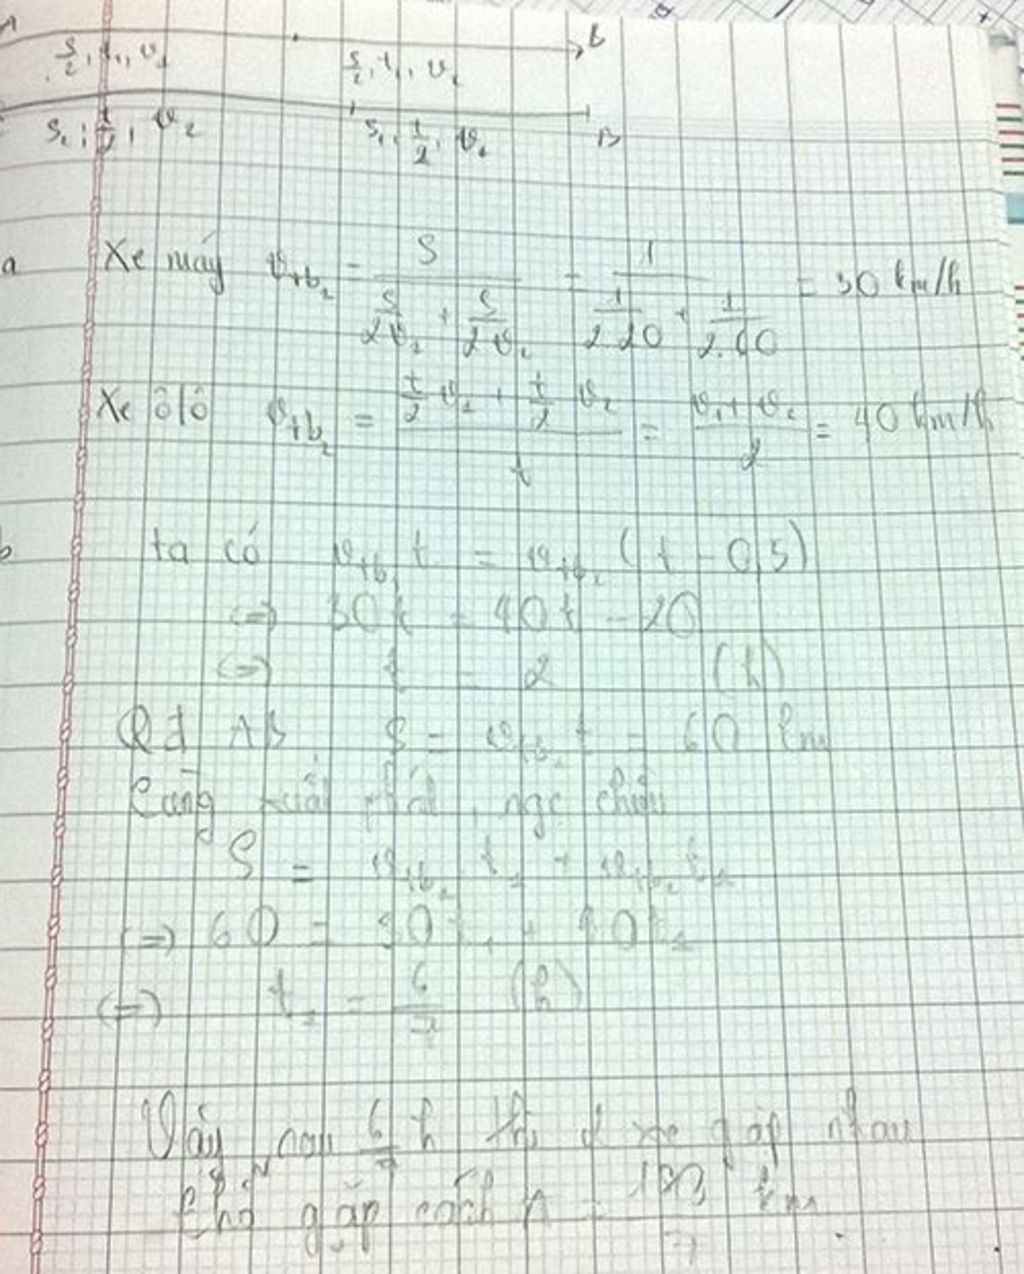 A B
S/2, t₁, v₁ S/2, t₁, v₂
S₂; t/2, v₂ S₁, t/2, v₂ B
a Xe máy v_tb₁ = S / (S/2v₁ + S/2v₂) = 1 / (1/2.20 + 1/2.60) = 30 km/h
Xe ôtô v_tb₂ = (t/2 v₁ + t/2 v₂) / t = (v₁ + v₂) / 2 = 40 km/h
b ta có v_tb₁ t = v_tb₂ (t - 0,5)
(=) 30t = 40t - 20
(=) t = 2 (h)
Qđ AB S = v_tb₁ t = 60 km
Cùng xuất phát, ngc chiều
S = v_tb₁ t₁ + v_tb₂ t₁
(=) 60 = 30t₁ + 40t₁
(=) t₁ = 6/7 (h)
Vậy sau 6/7 h thì 2 xe gặp nhau
Chỗ gặp cách A = 180/7 km